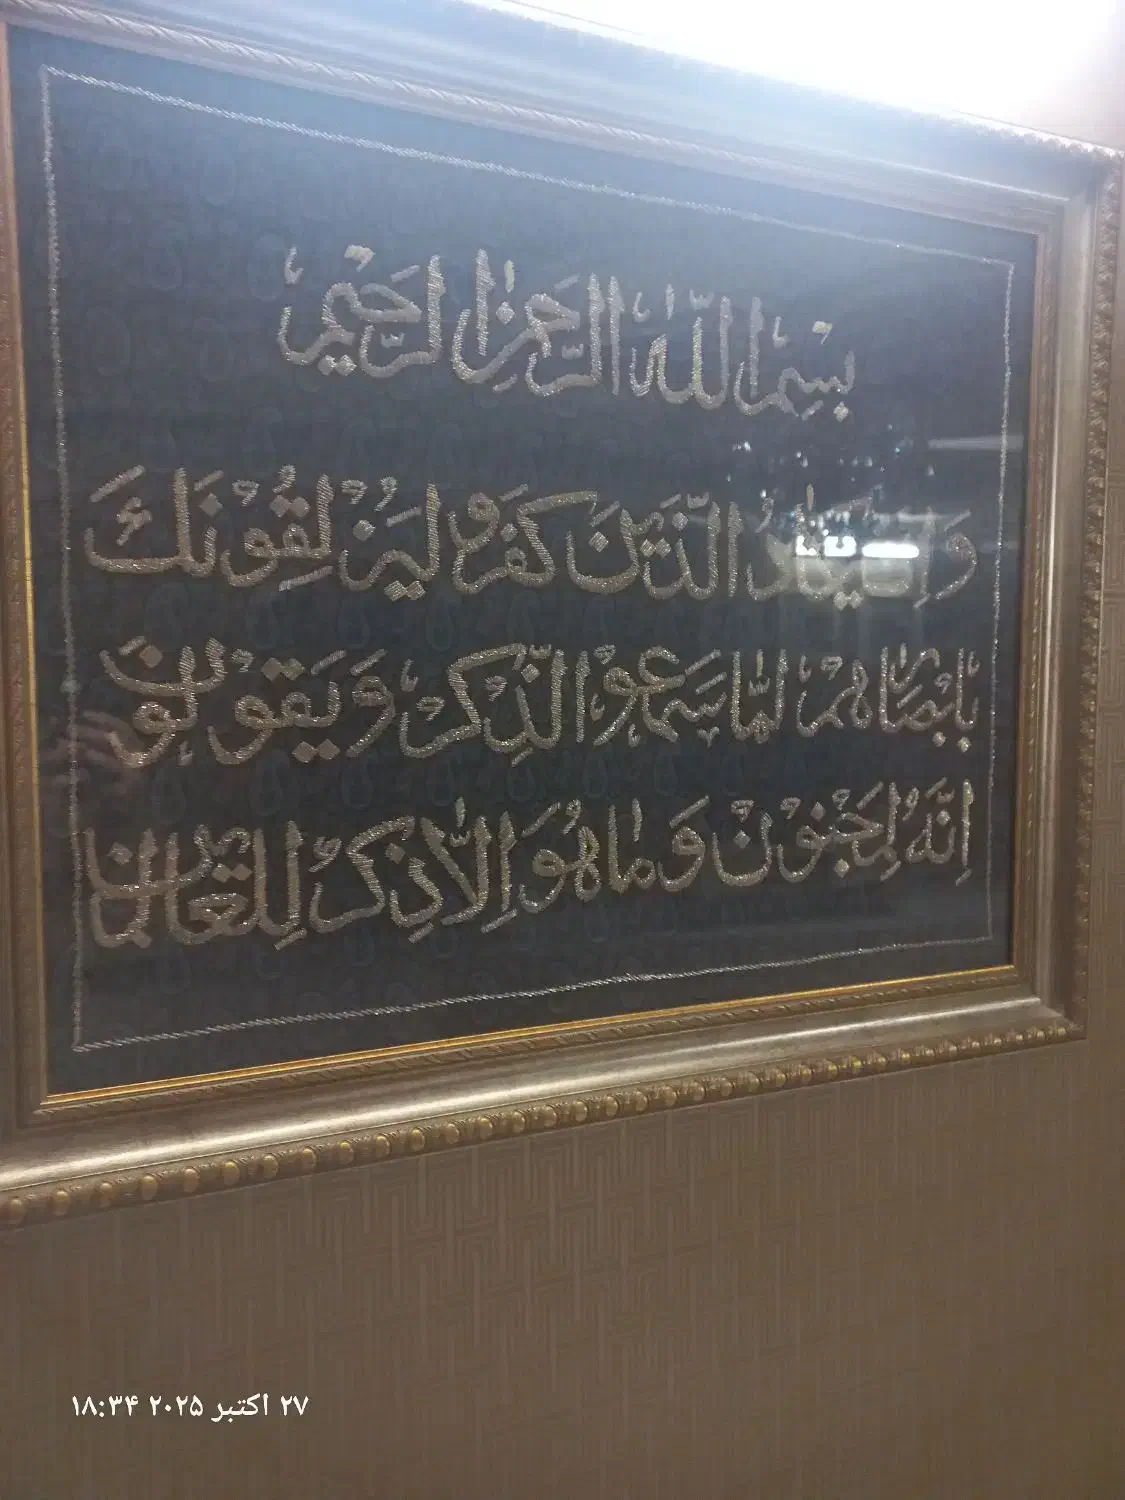 بِسْمِ اللّٰهِ الرَّحْمٰنِ الرَّحِيْمِ
وَاِنْ يَكَادُ الَّذِيْنَ كَفَرُو لَيُزْلِقُوْنَكَ
بِاَبْصَارِهِمْ لَمّا سَمِعُوْ الذِّكْرَ وَيَقُوْلُوْنَ
اِنَّهُ لَمَجْنُوْنْ وَمٰا هُوَ اِلاّٰ ذِكْرٌ لِلْعٰالَمِيْنَ
۲۷ اکتبر ۲۰۲۵ ۱۸:۳۴